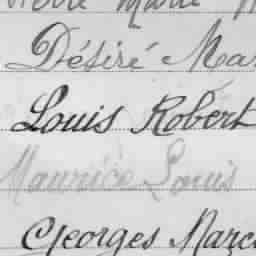 Pierre Marie
Désiré Mar
Louis Robert
Maurice Louis
Georges Marc